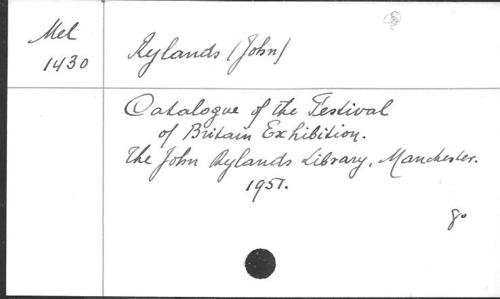 Mel
1430
Rylands (John)
Catalogue of the Festival
of Britain Exhibition.
The John Rylands Library, Manchester.
1951.
8o